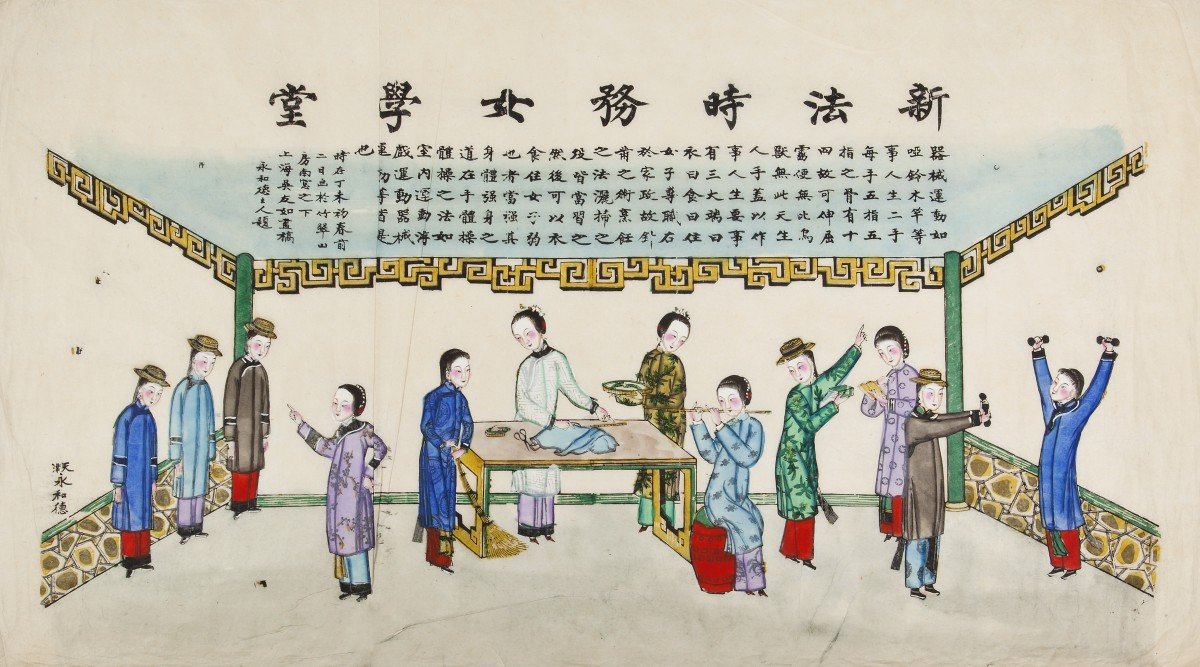 新法時務女學堂
器械運動如
啞鈴木竿等
事人生二手
每手五指五
指之骨有十
四故可伸屈
靈便無比鳥
獸無此天生
人手蓋以作
事人生要事
有三大端曰
衣曰食曰住
女子專職右
於家政故針
黹之術烹飪
之法灑掃之
役皆當習之
然後可以衣
食住女子弱
也者當強其
身體強身之
道在乎體操
體操之法如
室內運動海
戲運動器械
運動等皆是
也
時在丁未初春前
二日画於竹翠山
房南窓之下
上海吳友如畫稿
永和德主人題
永和德